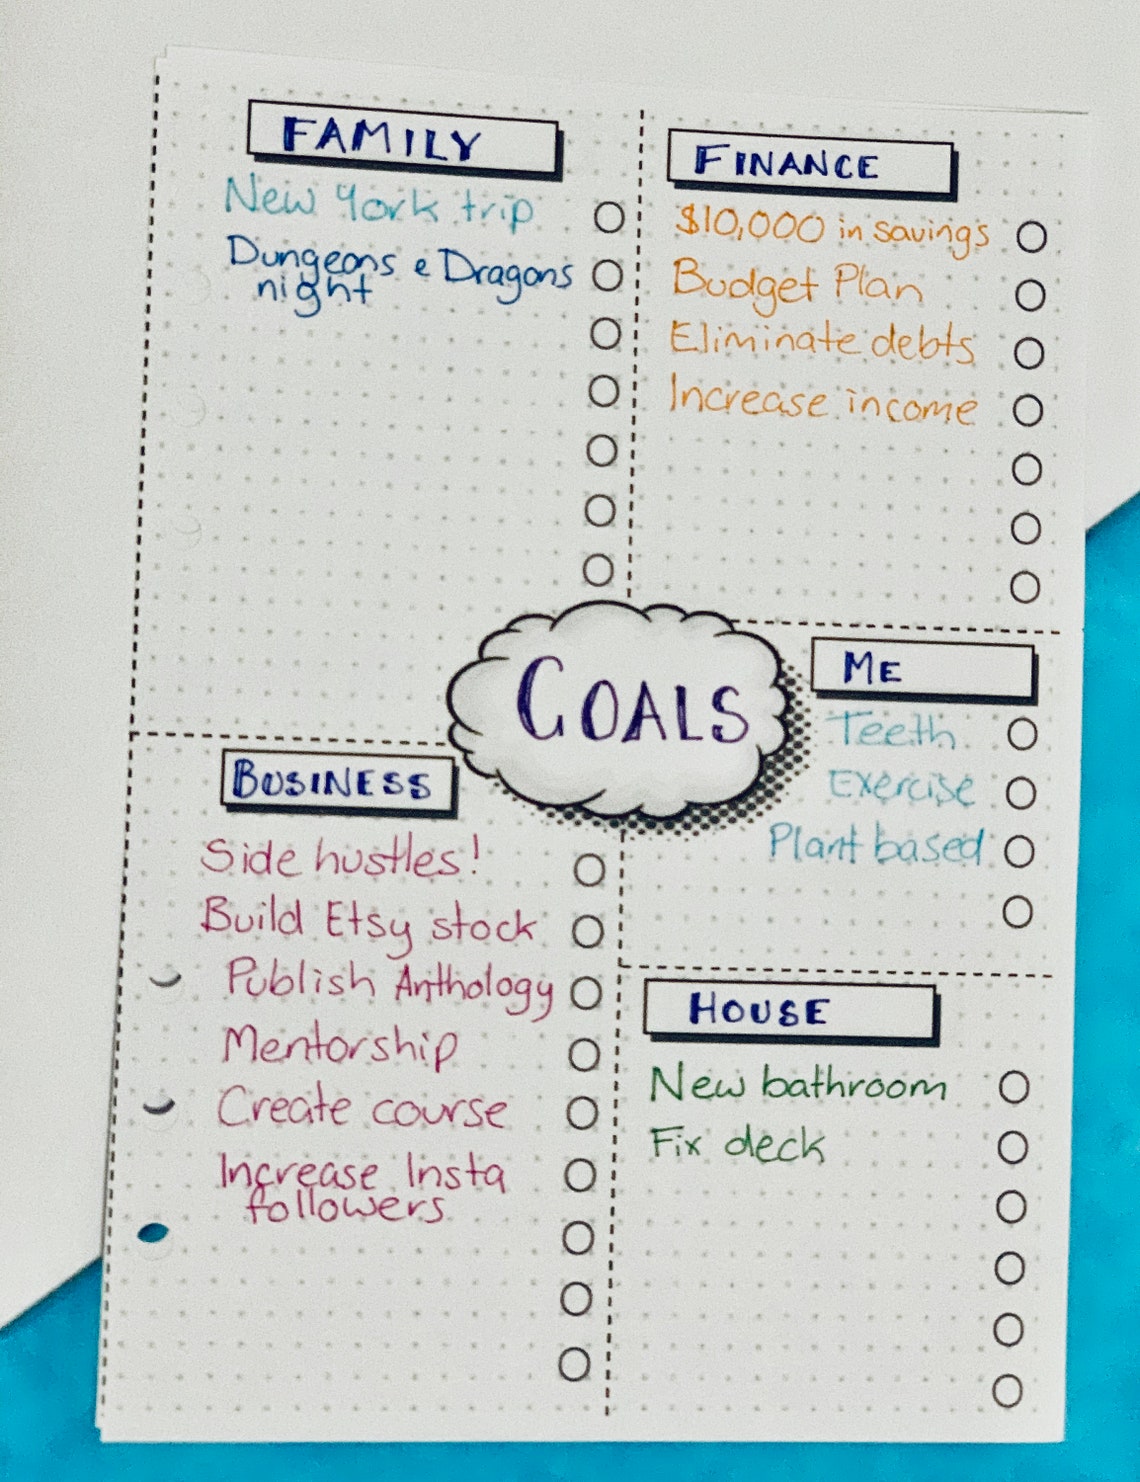 FAMILY
New York trip
Dungeons e Dragons
night
FINANCE
$10,000 in savings
Budget Plan
Eliminate debts
Increase income
GOALS
ME
Teeth
Exercise
Plant based
BUSINESS
Side hustles!
Build Etsy stock
Publish Anthology
Mentorship
Create course
Increase Insta
followers
HOUSE
New bathroom
Fix deck